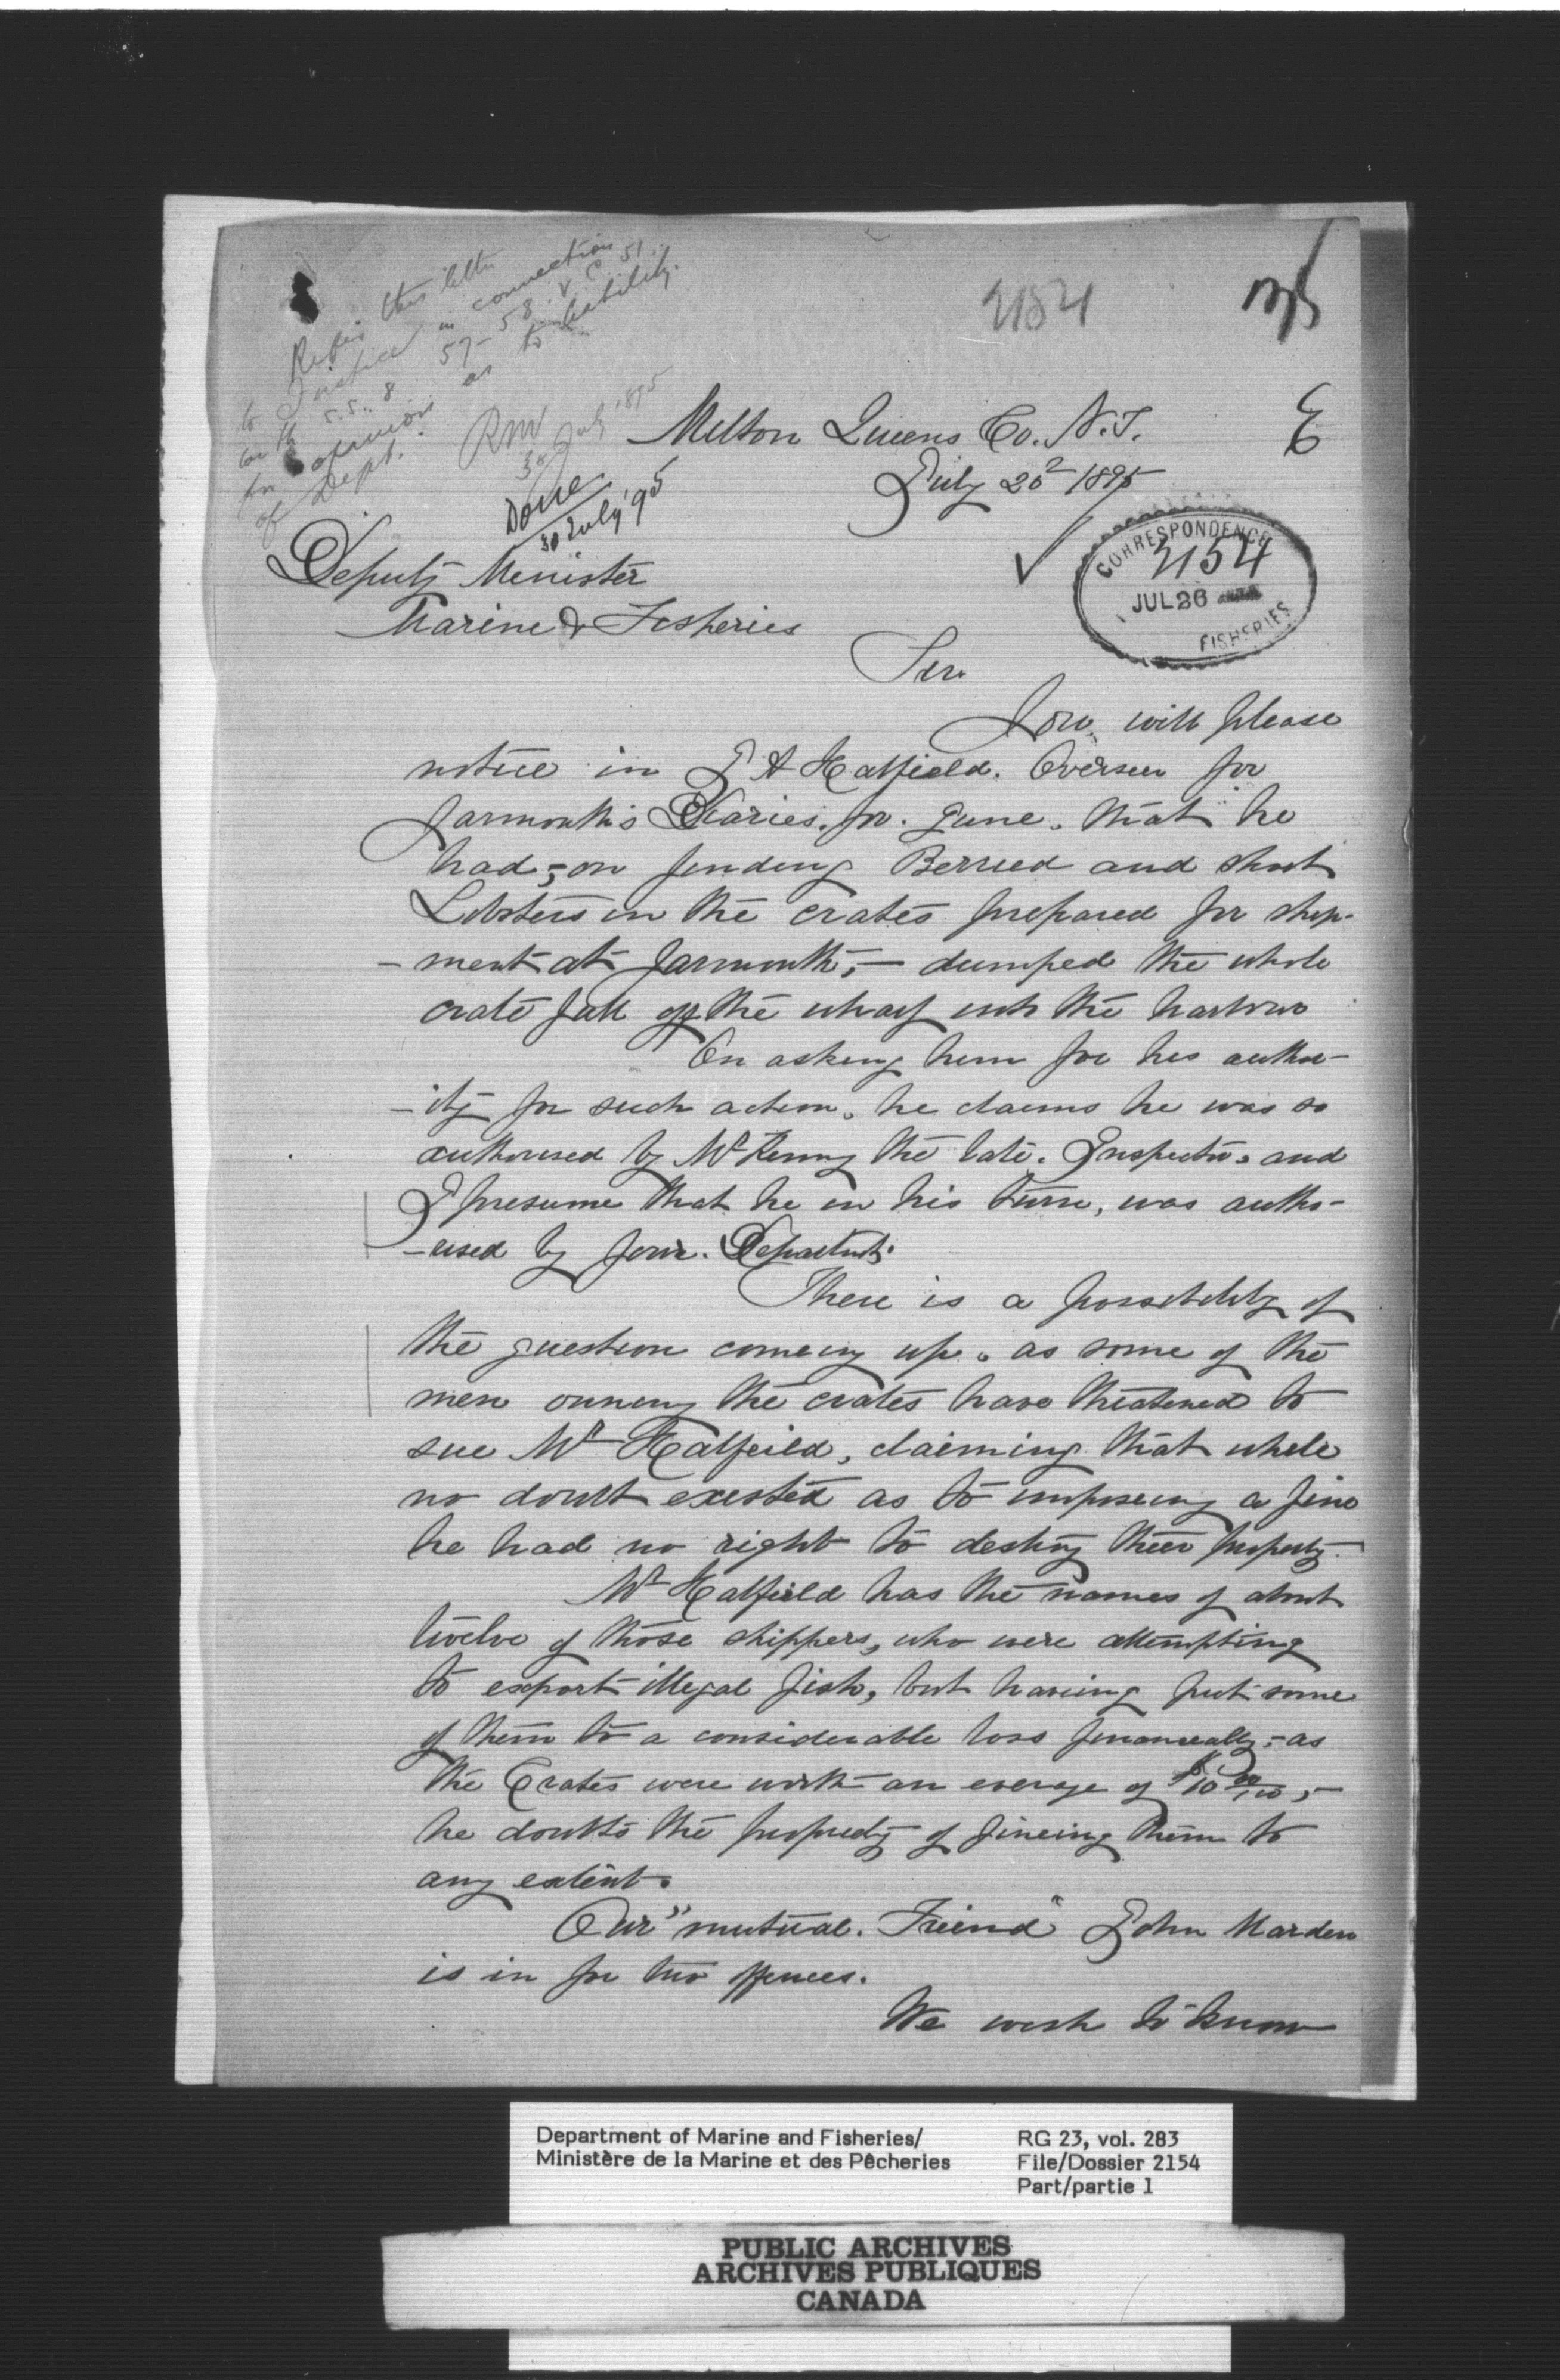 Refer this letter
to Justice in connection
with s.s. 8 57-58. V. C 51.
for opinion as to liability.
of Dept.
RM
30 July 1895
Done
30 July '95
2154
E
Milton Queens Co. N.S.
July 20 1895
CORRESPONDENCE
2154
JUL 26
FISHERIES
Deputy Minister
Marine & Fisheries
Sir.
You will please
notice in J A Hatfield. Overseer for
Yarmouth's Diaries. for. June. that he
had,- on finding Berried and short
Lobsters in the crates prepared for ship-
-ment at Yarmouth,- dumped the whole
crate full off the wharf into the harbour
On asking him for his author-
-ity for such action. he claims he was so
authorised by Mr Kenny the late. Inspector. and
I presume that he in his turn, was autho-
-rised by your. Department.
There is a possibility of
the question coming up. as some of the
men owning the crates have threatened to
sue Mr Hatfeild, claiming that while
no doubt existed as to imposing a fine
he had no right to destroy their property.
Mr Hatfield has the names of about
twelve of those shippers, who were attempting
to export illegal fish, but having put some
of them to a considerable loss financially,- as
the Crates were worth an average of $10 00/100,-
he doubts the propriety of fineing them to
any extent.
Our "mutual. Friend" John Marden
is in for two offences.
We wish to know
Department of Marine and Fisheries/
Ministère de la Marine et des Pêcheries
RG 23, vol. 283
File/Dossier 2154
Part/partie 1
PUBLIC ARCHIVES
ARCHIVES PUBLIQUES
CANADA